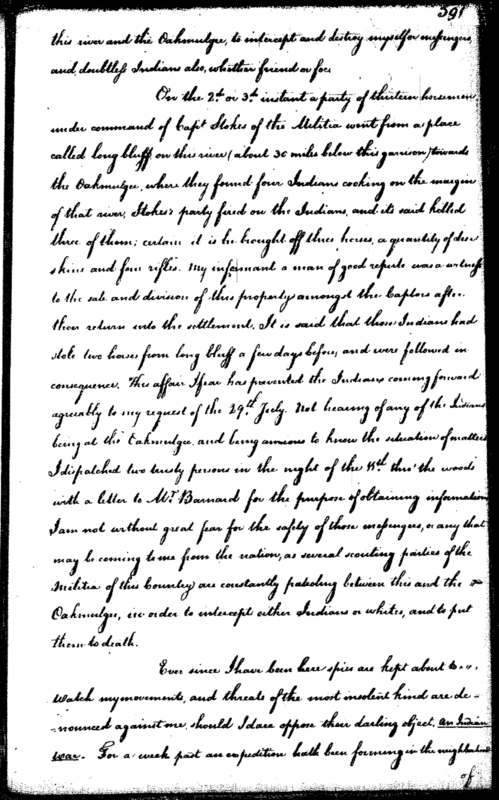 391
this river and the Oakmulgee, to intercept and destroy myself or messengers,
and doubtless Indians also, whether friend or foe.
On the 2d. or 3d. instant a party of thirteen horsemen
under command of Capt Stokes of the Militia went from a place
called long bluff on this river (about 30 miles below this garrison) towards
the Oakmulgee, where they found four Indians cooking on the margin
of that river, Stokes's party fired on the Indians, and its said killed
three of them; certain it is he brought off three horses, a quantity of deer
skins and four rifles. My informant a man of good repute was a witness
to the sale and division of this property amongst the Captors after
their return unto the settlement. It is said that those Indians had
stole two horses from long bluff a few days before, and were followed in
consequence. This affair I fear has prevented the Indians coming forward
agreeably to my request of the 29th. July. Not hearing of any of the Indians
being at the Oakmulgee, and being anxious to know the situation of matters
I dispatched two trusty persons in the night of the 15th thro' the woods
with a letter to Mr. Barnard for the purpose of obtaining information
I am not without great fear for the safety of those messengers, or any that
may be coming to me from the nation, as several scouting parties of the
Militia of this Country are constantly patroling between this and the
Oakmulgee, in order to intercept either Indians or whites, and to put
them to death.
Ever since I have been here spies are kept about to
watch my movements, and threats of the most insolent kind are de-
-nounced against me, should I dare oppose their darling object, an Indian
war. For a week past an expedition hath been forming in the neighborhood
of